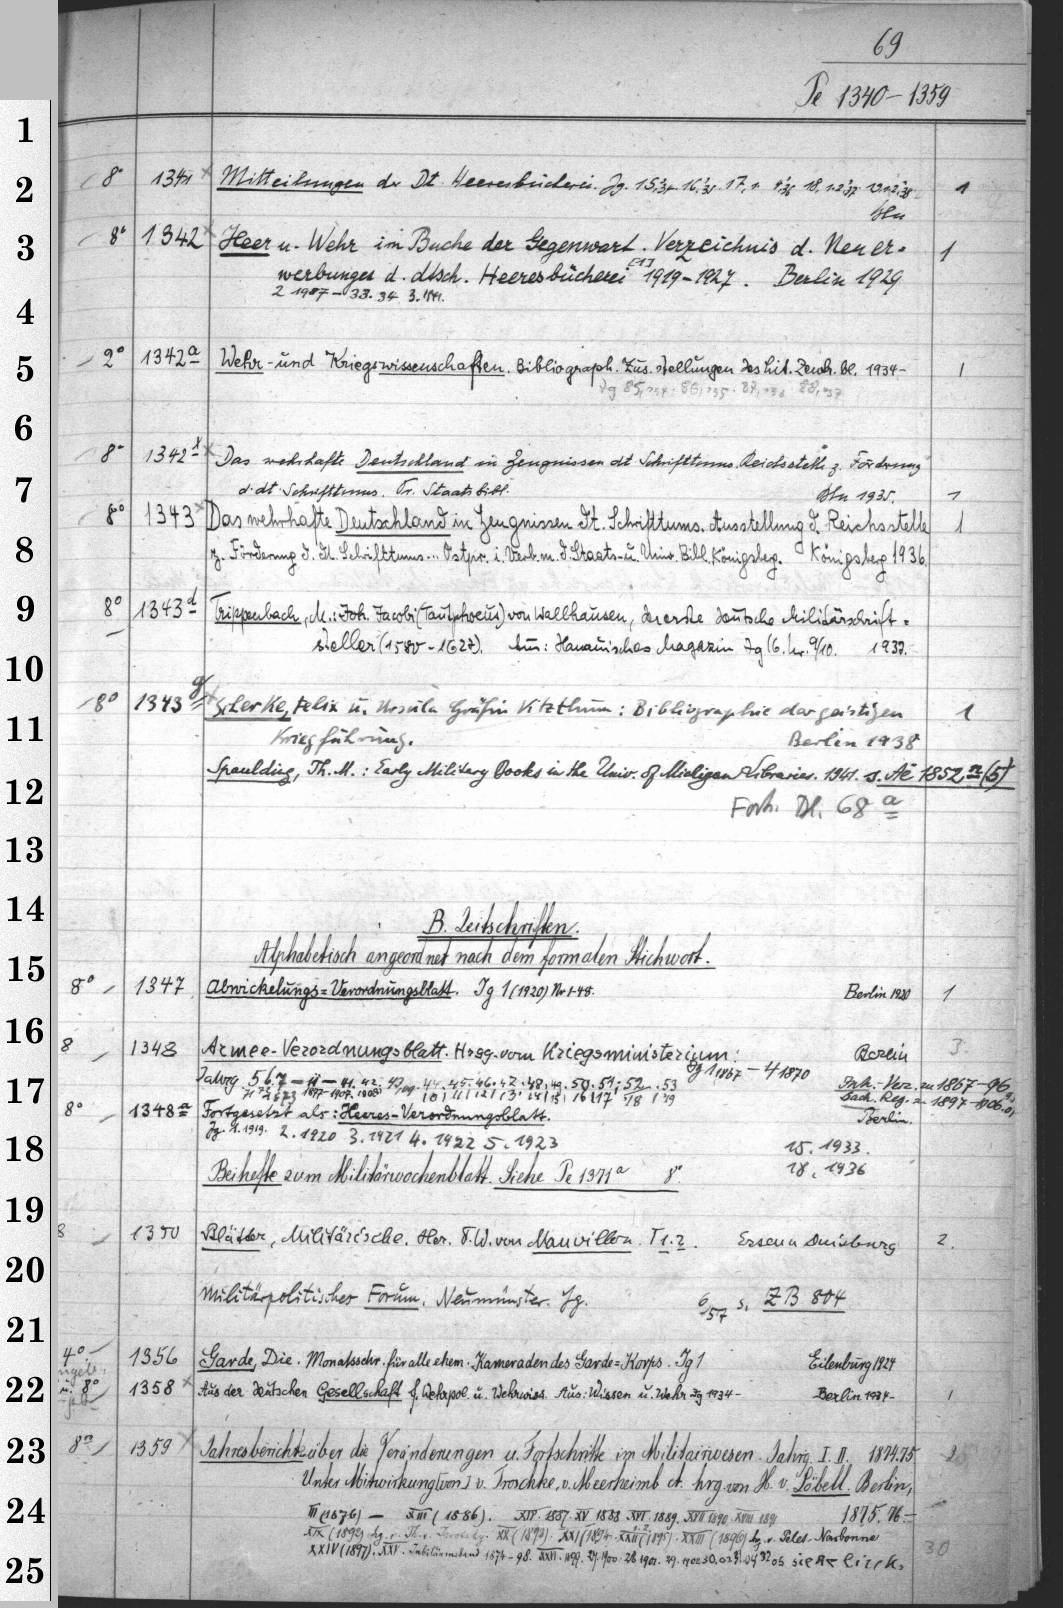 69
Pe 1340-1359
1
2 8° 1341 Mitteilungen der Dt. Heeresbücherei. Jg. 15,'34 16,'35 17,1 18,1.2,'37 1
Bln
3 8° 1342 Heer u. Wehr im Buche der Gegenwart. Verzeichnis d. Neuer= 1
werbungen d. dtsch. Heeresbücherei [1] 1919-1927. Berlin 1929
4 2 1927-33. 34 3.
5 2° 1342a Wehr- und Kriegswissenschaften. Bibliograph. Zus.stellungen des Lit. Zentr. Bl. 1934- 1
Jg 85,1934. 86,1935. 87,1936 88,1937
6
8° 1342 Das wehrhafte Deutschland in Zeugnissen dt Schrifttums. Reichsstelle z. Förderung
7 d. dt Schrifttums. Pr. Staatsbibl. Bln 1935. 1
8° 1343 Das wehrhafte Deutschland in Zeugnissen Dt. Schrifttums. Ausstellung d. Reichsstelle 1
8 z. Förderung d. dt. Schrifttums... Ostpr. i. Verb. m. d. Staats- u. Univ. Bibl. Königsberg. Königsberg 1936.
9 8° 1343d Trippenbach, M.: Joh. Jacobi (Tautphoeus) von Wallhausen, der erste deutsche Militärschrift=
steller (1580-1627). Aus: Hanauisches Magazin Jg 16. Nr. 9/10. 1937.
10
8° 1343g Scherke, Felix u. Ursula Gräfin Vitzthum: Bibliographie der geistigen 1
11 Kriegführung. Berlin 1938
Spaulding, Th. M.: Early Military Books in the Univ. of Michigan Libraries. 1941. s. Ae 1852 n (5)
12 Forts. Bl. 68 a
13
14 B. Zeitschriften.
15 Alphabetisch angeordnet nach dem formalen Stichwort.
8° 1347 Abwickelungs=Verordnungsblatt. Jg 1 (1920) Nr 1-48. Berlin 1920 1
16
8 1348 Armee-Verordnungsblatt. Hrsg. vom Kriegsministerium: Berlin 3.
Jg 1 1867-4 1870
17 Jahrg. 5 6.7 - 11 - 41. 42. 43. 44. 45. 46. 47. 48. 49. 50. 51. 52. 53 Inh.-Verz. zu 1867-96
Sach. Reg. zu 1897-1906
8° 1348a Fortgesetzt als: Heeres-Verordnungsblatt. Berlin.
18 Jg. 1. 1919. 2. 1920 3. 1921 4. 1922 5. 1923 15. 1933.
18. 1936
Beihefte zum Militärwochenblatt. Siehe Pe 1371a 8°.
19
8 1350 Blätter, Militärische. Her. F. W. von Mauvillon. T 1. 2. Essen u Duisburg 2.
20
Militärpolitisches Forum. Neumünster. Jg. 6/57 s. ZB 804
21
4° 1356 Garde, Die. Monatsschr. für alle ehem. Kameraden des Garde=Korps. Jg 1 Eilenburg 1924
22 u. 8° 1358 Aus der deutschen Gesellschaft f. Wehrpol. u. Wehrwiss. Aus: Wissen u. Wehr Jg 1934- Berlin 1934- 1
23 8° 1359 Jahresberichte über die Veränderungen u. Fortschritte im Militairwesen. Jahrg. I. II. 1874.75 2
Unter Mitwirkung [von] v. Troschke, v. Meerheimb etc. hrg. von H. v. Löbell. Berlin,
24 III (1876) - XIII (1886). XIV. 1887. XV 1888. XVI. 1889. XVII 1890. XVIII 1891 1875. 76-
XIX (1892) hg. v. XX (1893). XXI (1894. XXII (1895). XXIII (1896) hg. v. Pelet-Narbonne
XXIV (1897). XXV. Jubiläumsband 1874-98. XXVI. 1899. 27. 1900. 28 1901. 29. 1902 30.03 31.04 32 05 30
25